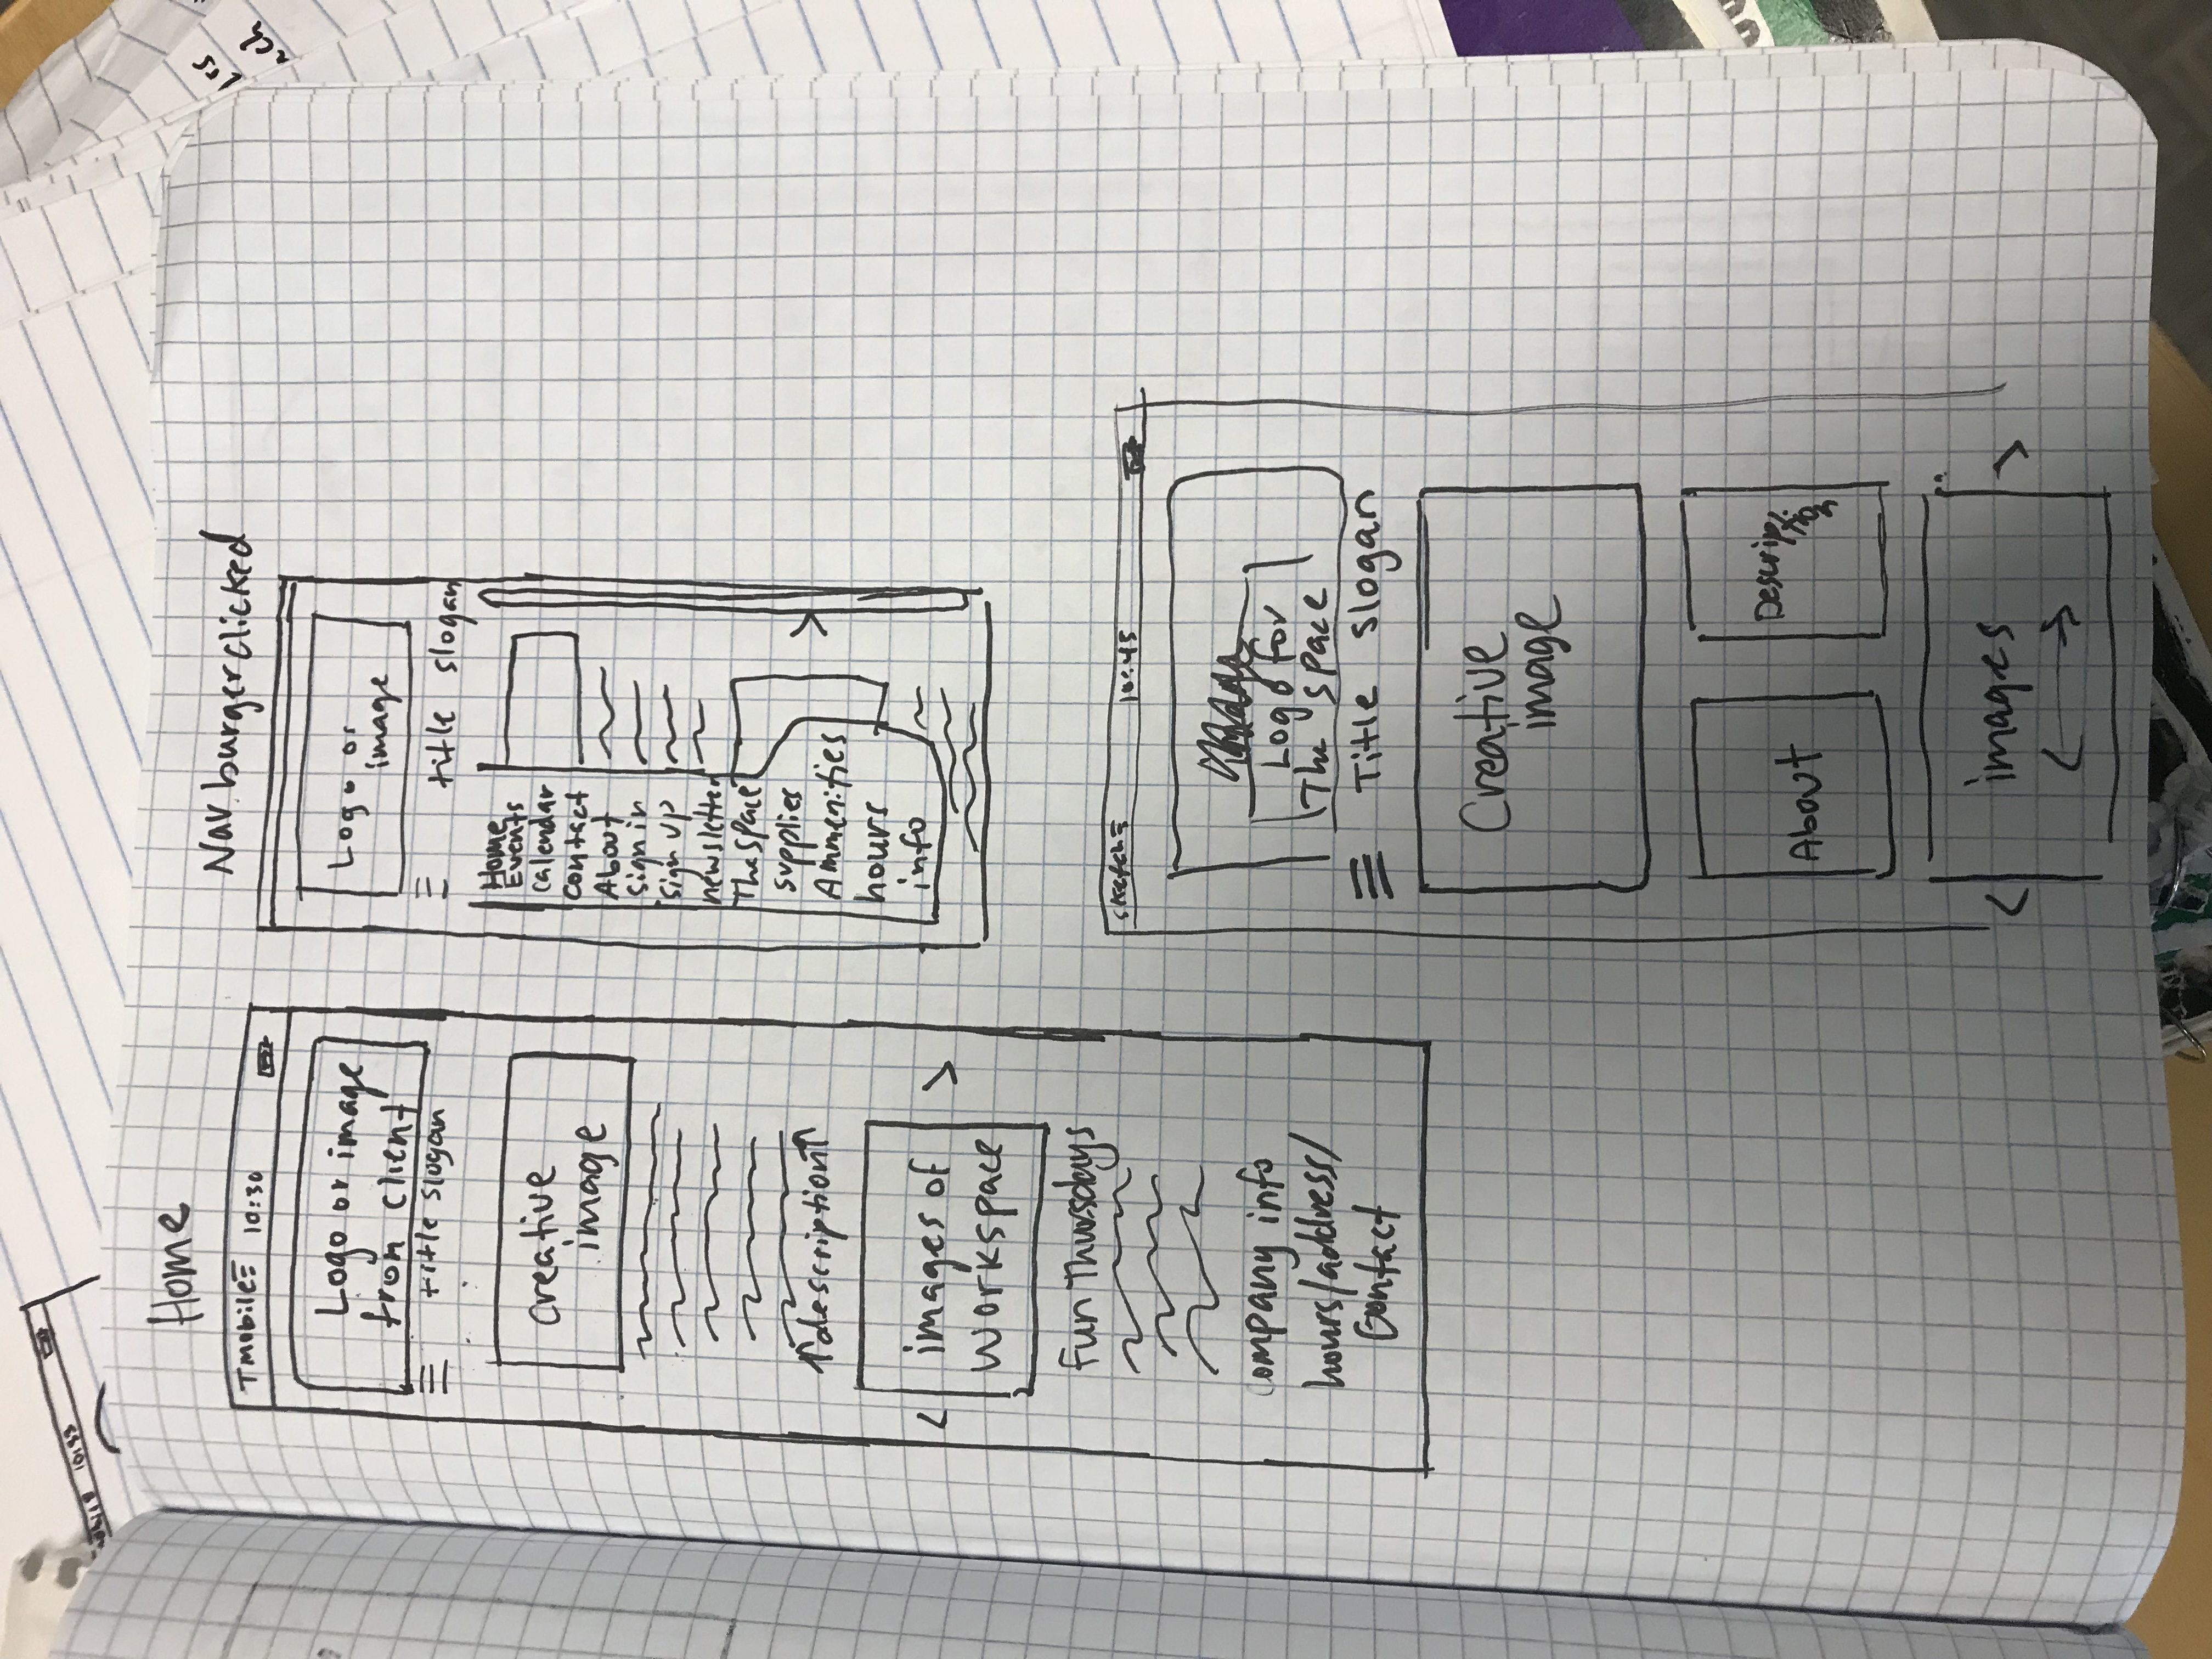 10:33
Home
Tmobile 10:30
Logo or image
from client
title slogan
Creative
image
↑description↑
< images of >
workspace
Fun Thursdays
Company info
hours/address/
Contact
Nav burger clicked
Logo or
image
title slogan
Home
Events
calendar
contact
About
sign in
sign up
newsletter
The space
supplies
Ammenities
hours
info
>
sketch 10:45
Logo for
The space
Title slogan
Creative
image
About
Description
< images >